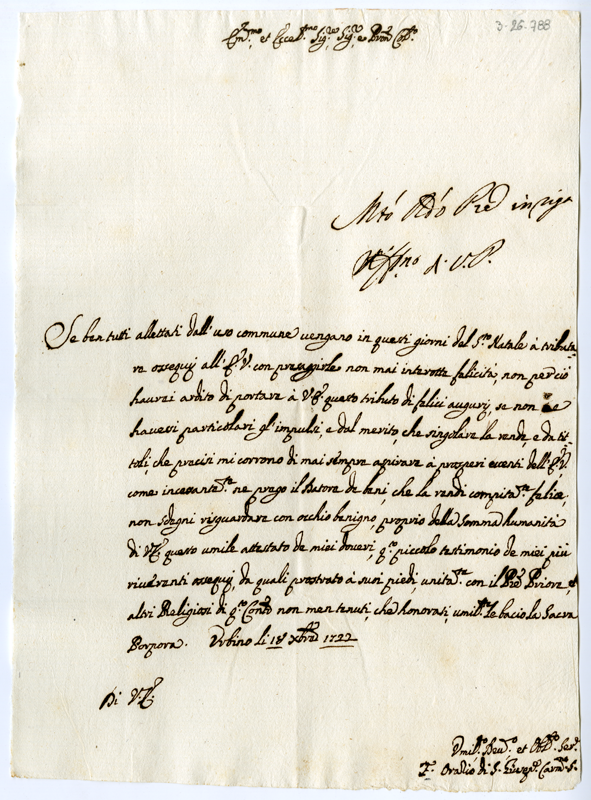 3-26.788
Em.mo et Ecce.mo Sig.re Sig.r e Pron Col.mo
Mtó Rdó Pre in riga
Aff.mo d. V.P.
Se ben tutti allettati dall'uso commune vengano in questi giorni del S.mo Natale à tributa-
re ossequij all'E.V. con presagirle non mai interrotte felicità, non perciò
haurei ardito di portare à V.E. questo tributo di felici augurij, se non ne
havessi particolari gl'impulsi, e dal merito, che singolare la rende, e da ti-
toli, che precisi mi corrono di mai sempre aspirare à prosperi eventi dell'E.V.
come incessante.te ne prego il Datore de beni, che la rendi compita.te felice,
non sdegni risguardare con occhio benigno, proprio della somma humanità
di V.E. questo umile attestato de miei doveri, q.o piccolo testimonio de miei più
riverenti ossequij, da quali prostrato à suoi piedi, unita.te con il Pre Priore, et
altri Religiosi di q.o Conv.to non men tenuti, che honorati, umil.te le bacio la Sacra
Porpora. Urbino li 18 Xbre 1722
Di V.E.
Umil.o Dev.o et Obl.o Ser.
F. Oradio di S. Giusep.e Carm.o S.